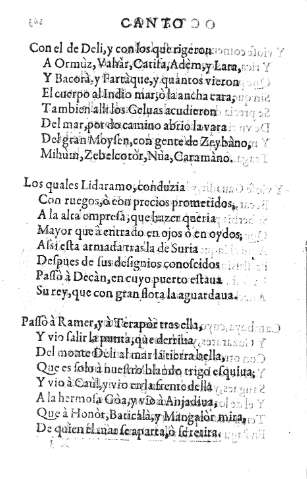 CANTO
Con el de Deli, y con los que rigeron
A Ormùz, Vahàr, Catifa, Adèm, y Lara,
Y Bacorà, y Fartaque, y quantos vieron
El cuerpo al Indio març ò la ancha cara,
Tambien alli los Geluas acudieron
Del mar, por do camino abrio la vara
Del gran Moysen, con gente de Zeybàno,
Mihùm, Zebelcotòr, Nùa, Caramàno.
Los quales Lidaramo, conduzia
Con ruegos, ò con precios prometidos,
A la alta empresa, que hazer queria
Mayor que à entrado en ojos ò en oydos;
Assi esta armada tras la de Suria
Despues de sus designios conoscidos
Passò à Decàn, en cuyo puerto estaua
Su rey, que con gran flota la aguardaua.
Passò à Ramer, y à Terapòr tras ella,
Y vio salir la punta, que derriba
Del monte Deli al mar la tierra bella,
Que es solo à nuestro blando trigo esquiua;
Y viò à Caùl, y vio en la frente della
A la hermosa Gòa, y viò à Anjadiua,
Que à Honòr, Baticalà, y Mangalòr mira,
De quien el mar se aparta, ò se retira.